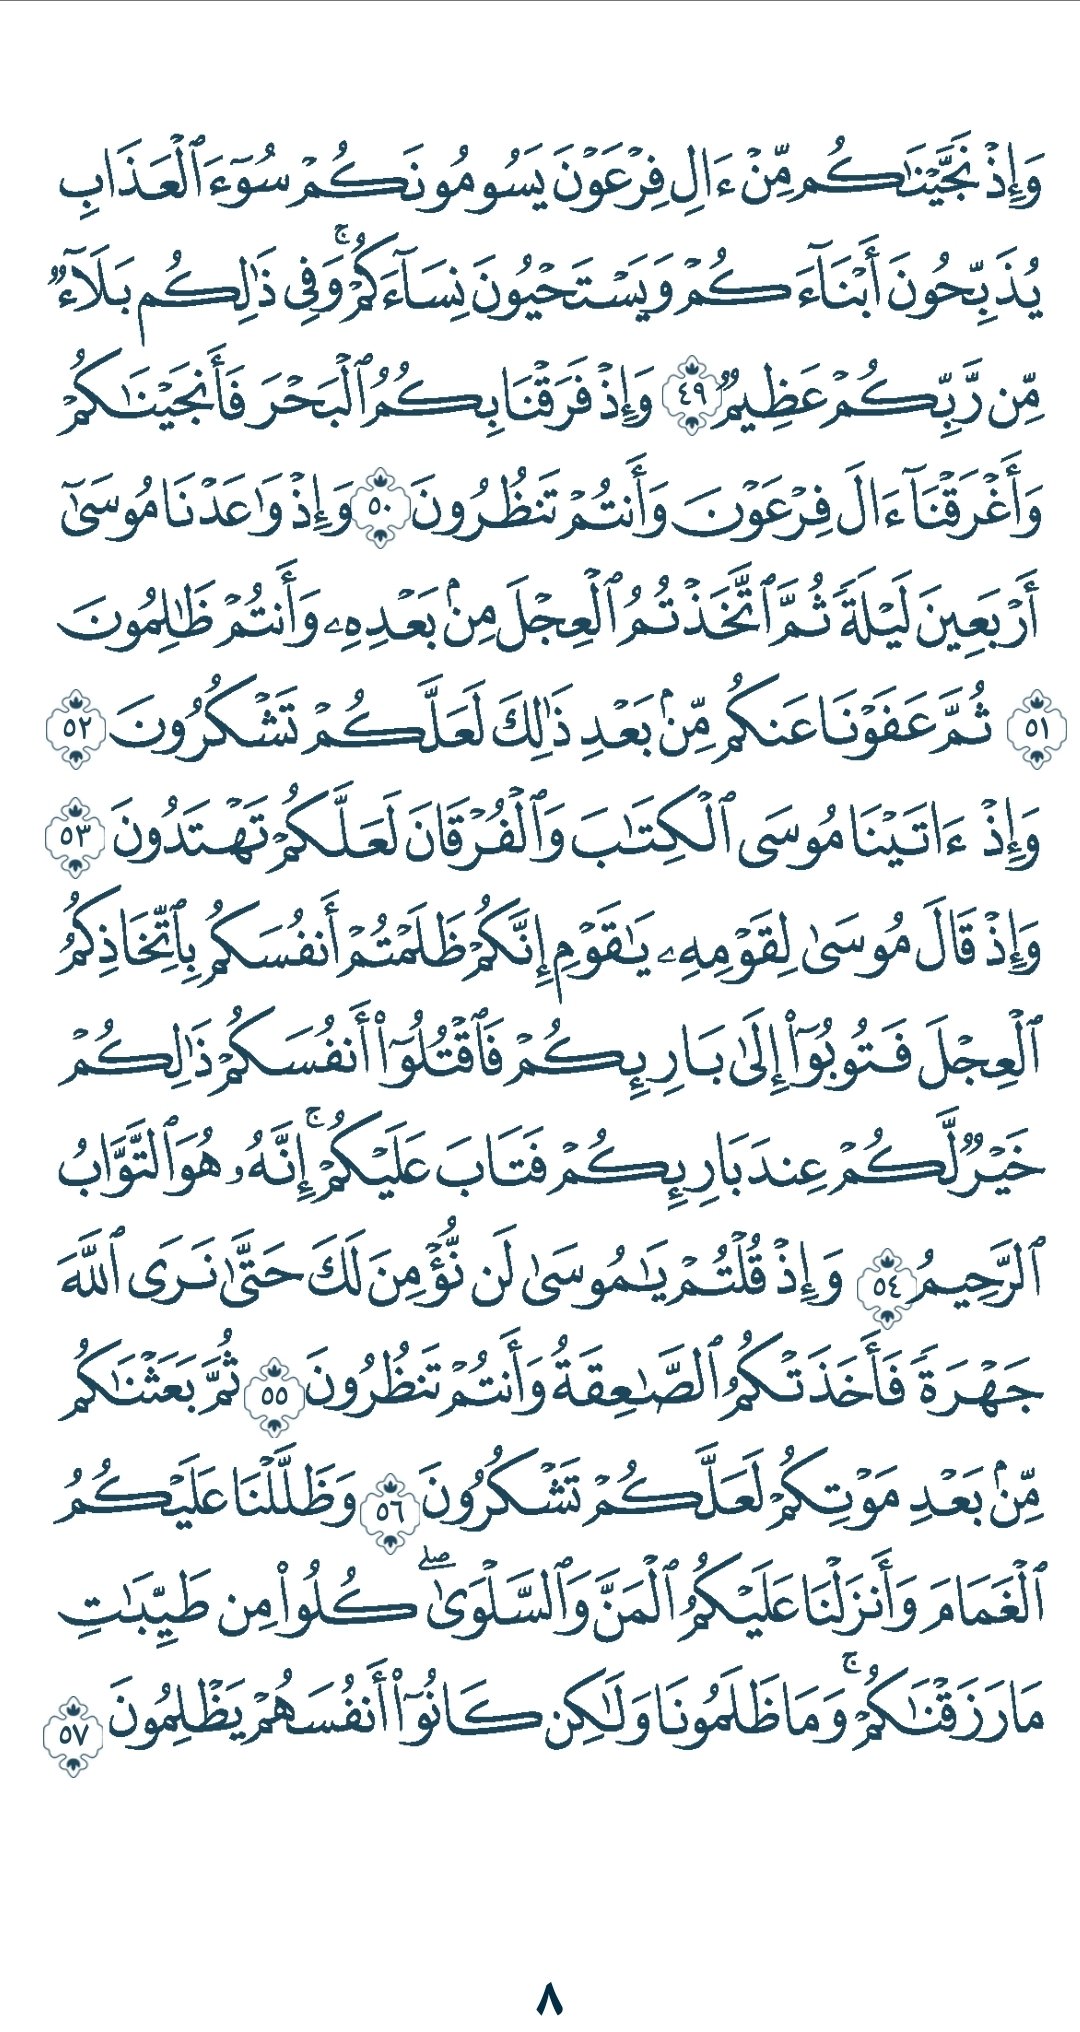 وَإِذْ نَجَّيْنَٰكُم مِّنْ ءَالِ فِرْعَوْنَ يَسُومُونَكُمْ سُوٓءَ ٱلْعَذَابِ
يُذَبِّحُونَ أَبْنَآءَكُمْ وَيَسْتَحْيُونَ نِسَآءَكُمْ ۚ وَفِى ذَٰلِكُم بَلَآءٌ
مِّن رَّبِّكُمْ عَظِيمٌ ٤٩ وَإِذْ فَرَقْنَا بِكُمُ ٱلْبَحْرَ فَأَنجَيْنَٰكُمْ
وَأَغْرَقْنَآ ءَالَ فِرْعَوْنَ وَأَنتُمْ تَنظُرُونَ ٥٠ وَإِذْ وَٰعَدْنَا مُوسَىٰٓ
أَرْبَعِينَ لَيْلَةً ثُمَّ ٱتَّخَذْتُمُ ٱلْعِجْلَ مِنۢ بَعْدِهِۦ وَأَنتُمْ ظَٰلِمُونَ
٥١ ثُمَّ عَفَوْنَا عَنكُم مِّنۢ بَعْدِ ذَٰلِكَ لَعَلَّكُمْ تَشْكُرُونَ ٥٢
وَإِذْ ءَاتَيْنَا مُوسَى ٱلْكِتَٰبَ وَٱلْفُرْقَانَ لَعَلَّكُمْ تَهْتَدُونَ ٥٣
وَإِذْ قَالَ مُوسَىٰ لِقَوْمِهِۦ يَٰقَوْمِ إِنَّكُمْ ظَلَمْتُمْ أَنفُسَكُم بِٱتِّخَاذِكُمُ
ٱلْعِجْلَ فَتُوبُوٓا۟ إِلَىٰ بَارِئِكُمْ فَٱقْتُلُوٓا۟ أَنفُسَكُمْ ذَٰلِكُمْ
خَيْرٌ لَّكُمْ عِندَ بَارِئِكُمْ فَتَابَ عَلَيْكُمْ ۚ إِنَّهُۥ هُوَ ٱلتَّوَّابُ
ٱلرَّحِيمُ ٥٤ وَإِذْ قُلْتُمْ يَٰمُوسَىٰ لَن نُّؤْمِنَ لَكَ حَتَّىٰ نَرَى ٱللَّهَ
جَهْرَةً فَأَخَذَتْكُمُ ٱلصَّٰعِقَةُ وَأَنتُمْ تَنظُرُونَ ٥٥ ثُمَّ بَعَثْنَٰكُم
مِّنۢ بَعْدِ مَوْتِكُمْ لَعَلَّكُمْ تَشْكُرُونَ ٥٦ وَظَلَّلْنَا عَلَيْكُمُ
ٱلْغَمَامَ وَأَنزَلْنَا عَلَيْكُمُ ٱلْمَنَّ وَٱلسَّلْوَىٰ ۖ كُلُوا۟ مِن طَيِّبَٰتِ
مَا رَزَقْنَٰكُمْ ۚ وَمَا ظَلَمُونَا وَلَٰكِن كَانُوٓا۟ أَنفُسَهُمْ يَظْلِمُونَ ٥٧
٨